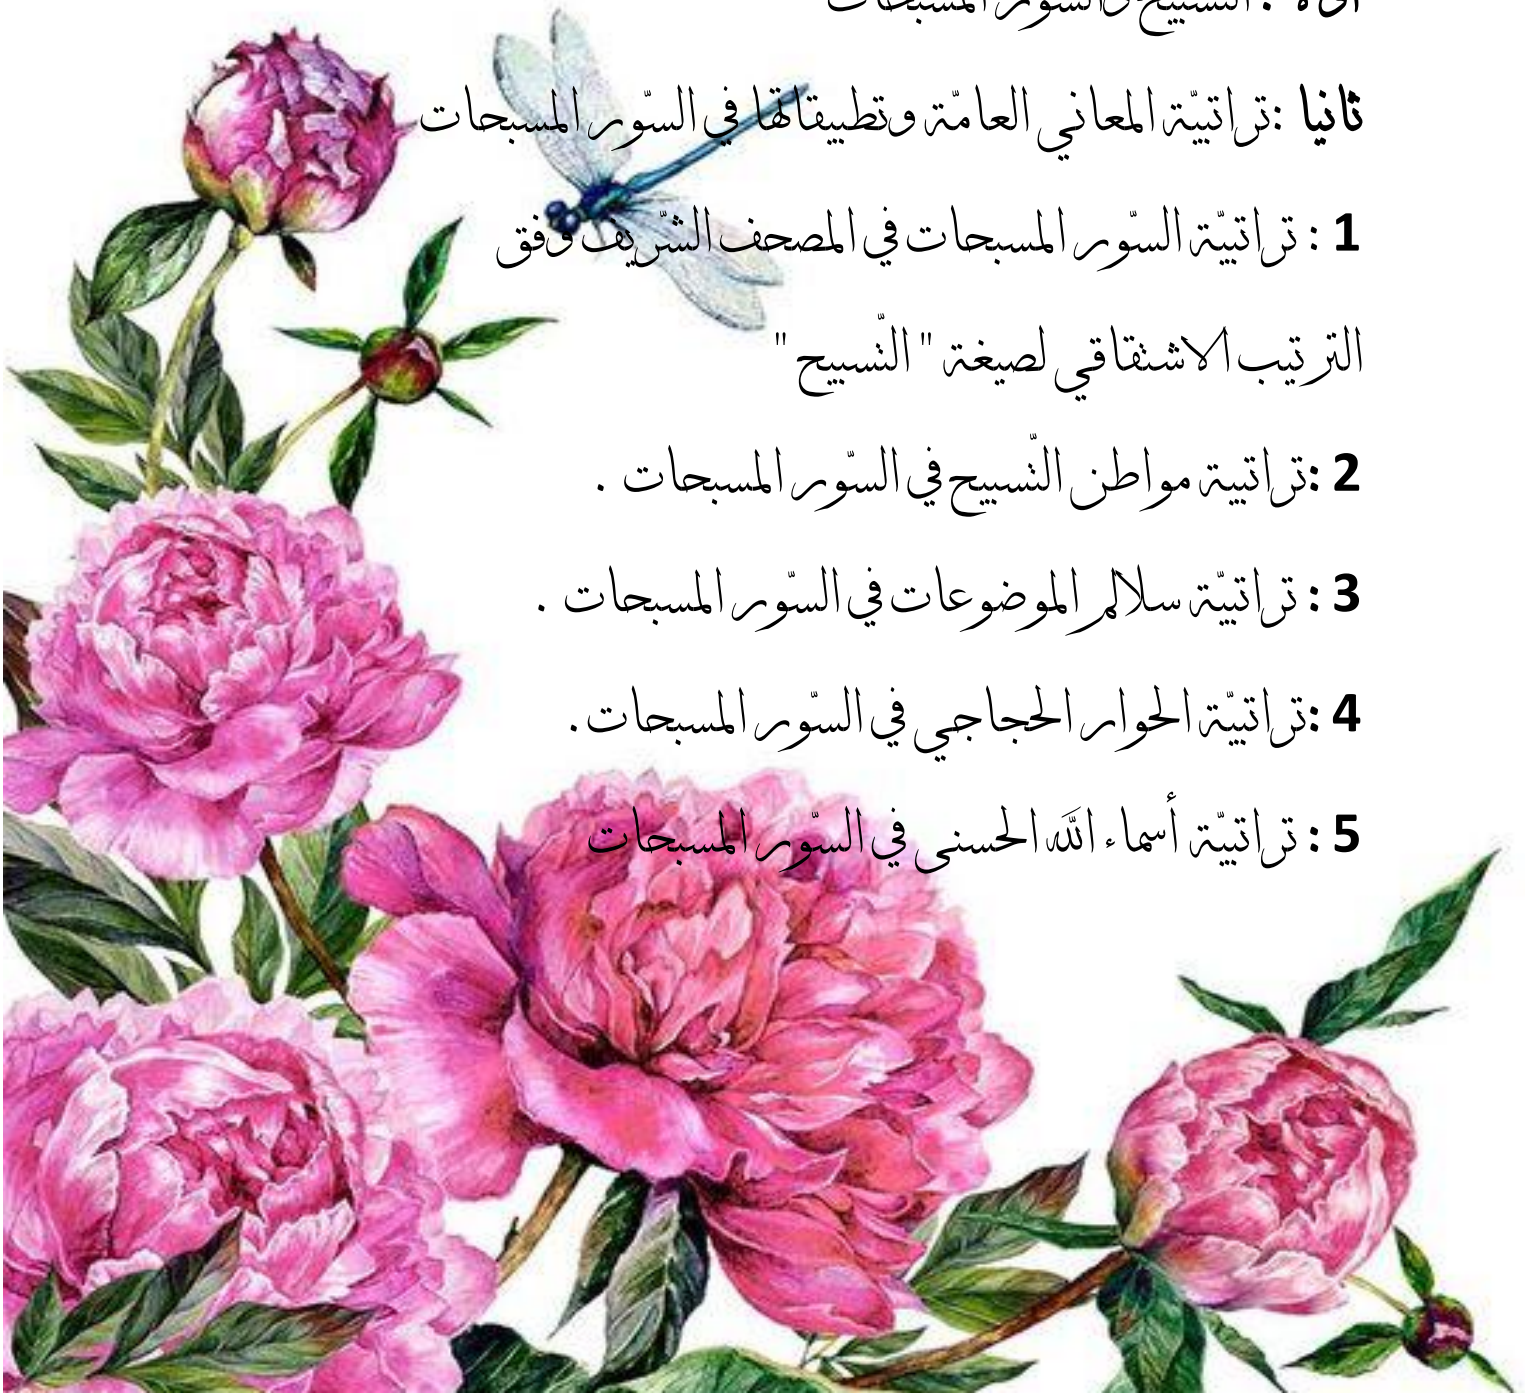 : التسبيح والسور المسبحات
ثانيا :تراتبيّة المعاني العامّة وتطبيقاتها في السّور المسبحات
1 : تراتبيّة السّور المسبحات في المصحف الشّريف وفق
الترتيب الاشتقاقي لصيغة " التّسبيح "
2 :تراتبية مواطن التّسبيح في السّور المسبحات .
3 : تراتبيّة سلالم الموضوعات في السّور المسبحات .
4 :تراتبيّة الحوار الحجاجي في السّور المسبحات.
5 : تراتبيّة أسماء الله الحسنى في السّور المسبحات